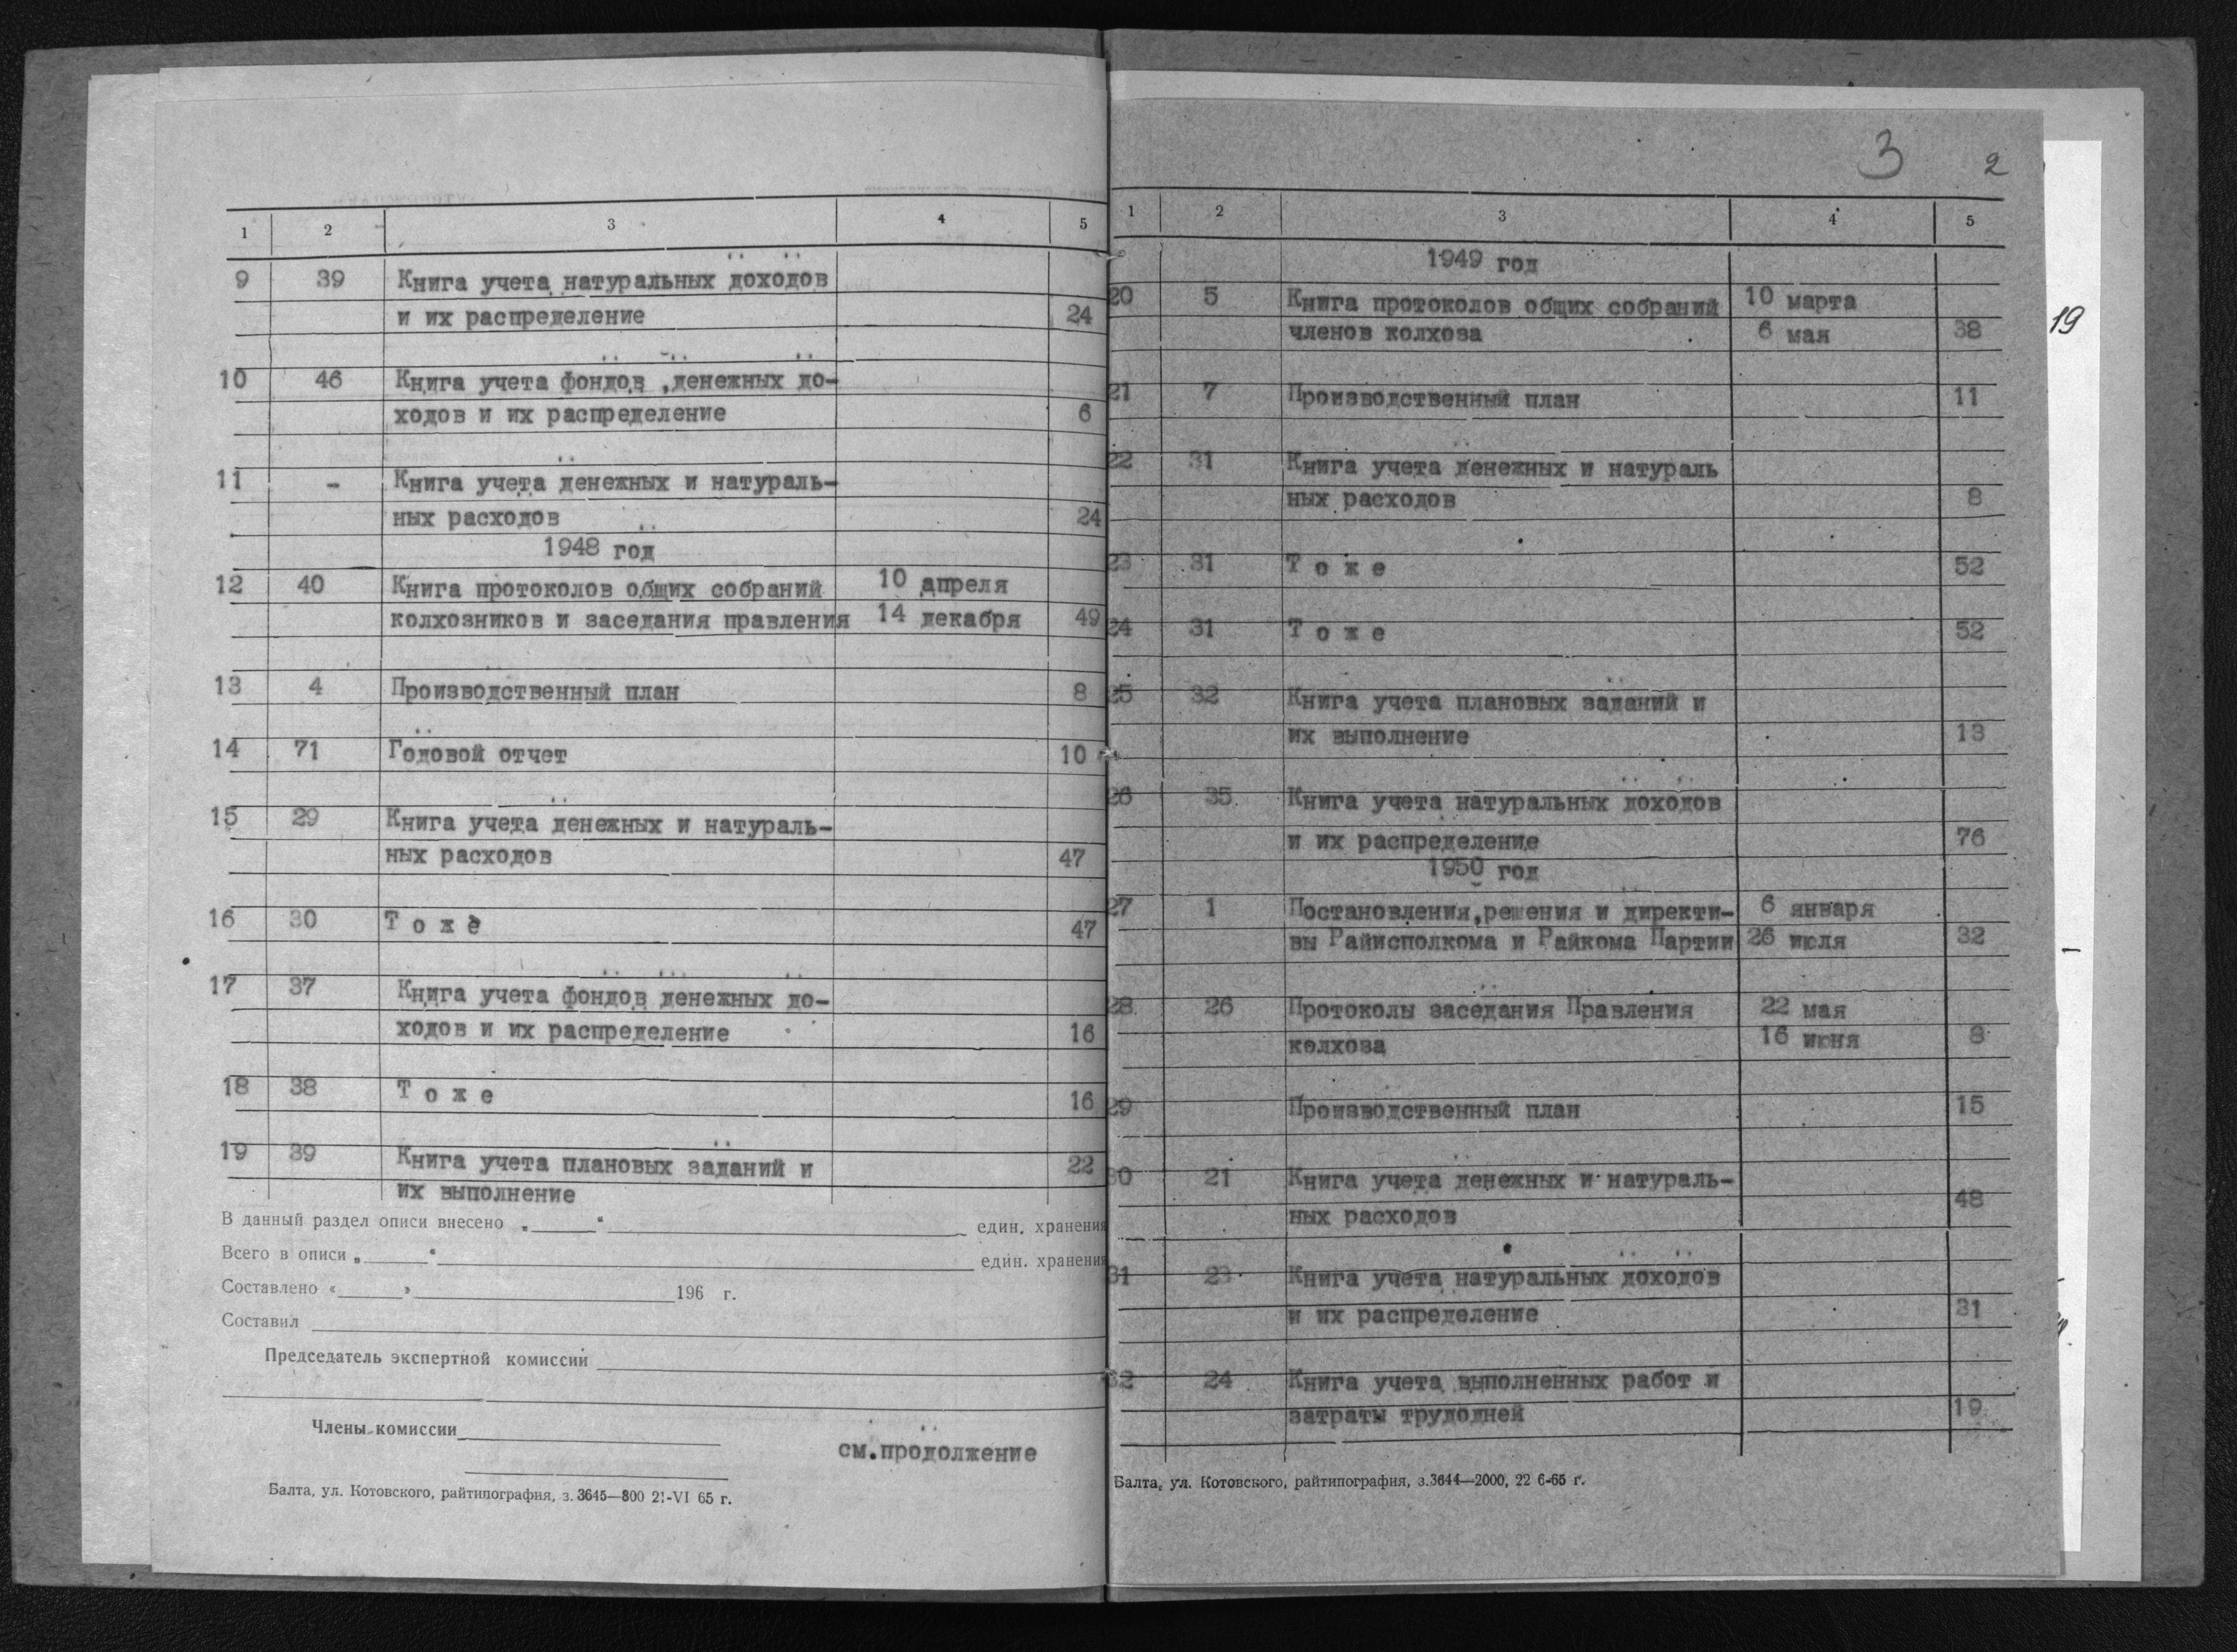 1 2 3 4 5
9 39 Книга учета натуральных доходов
и их распределение 24
10 46 Книга учета фондов ,денежных до-
ходов и их распределение 6
11 - Книга учета денежных и натураль-
ных расходов 24
1948 год
12 40 Книга протоколов общих собраний 10 апреля
колхозников и заседания правления 14 декабря 49
13 4 Производственный план 8
14 71 Годовой отчет 10
15 29 Книга учета денежных и натураль-
ных расходов 47
16 30 Т о ж е 47
17 37 Книга учета фондов денежных до-
ходов и их распределение 16
18 38 Т о ж е 16
19 39 Книга учета плановых заданий и 22
их выполнение
В данный раздел описи внесено „ “ един. хранения
Всего в описи „ “ един. хранения
Составлено « » 196 г.
Составил
Председатель экспертной комиссии
Члены комиссии
см.продолжение
Балта, ул. Котовского, райтипография, з. 3645—800 21-VI 65 г.
3 2
1 2 3 4 5
1949 год
20 5 Книга протоколов общих собраний 10 марта
членов колхоза 6 мая 38
21 7 Производственный план 11
22 31 Книга учета денежных и натураль
ных расходов 8
23 31 Т о ж е 52
24 31 Т о ж е 52
25 32 Книга учета плановых заданий и
их выполнение 13
26 35 Книга учета натуральных доходов
и их распределение 76
1950 год
27 1 Постановления,решения и директи- 6 января
вы Райисполкома и Райкома Партии 26 июля 32
28 26 Протоколы заседания Правления 22 мая
колхоза 16 июня 8
29 Производственный план 15
30 21 Книга учета денежных и натураль-
ных расходов 48
31 23 Книга учета натуральных доходов
и их распределение 31
32 24 Книга учета выполненных работ и
затраты трудодней 19
Балта, ул. Котовского, райтипография, з.3644—2000, 22 6-65 г.
19